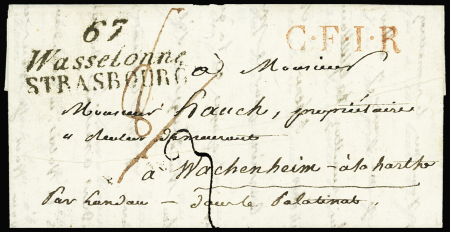 67
Wasselonne
STRASBOURG
C.F.I.R
à Monsieur
Monsieur Hauch, propriétaire
demeurant
à Wachenheim-à la harth
Par Landau — dans le Palatinat.